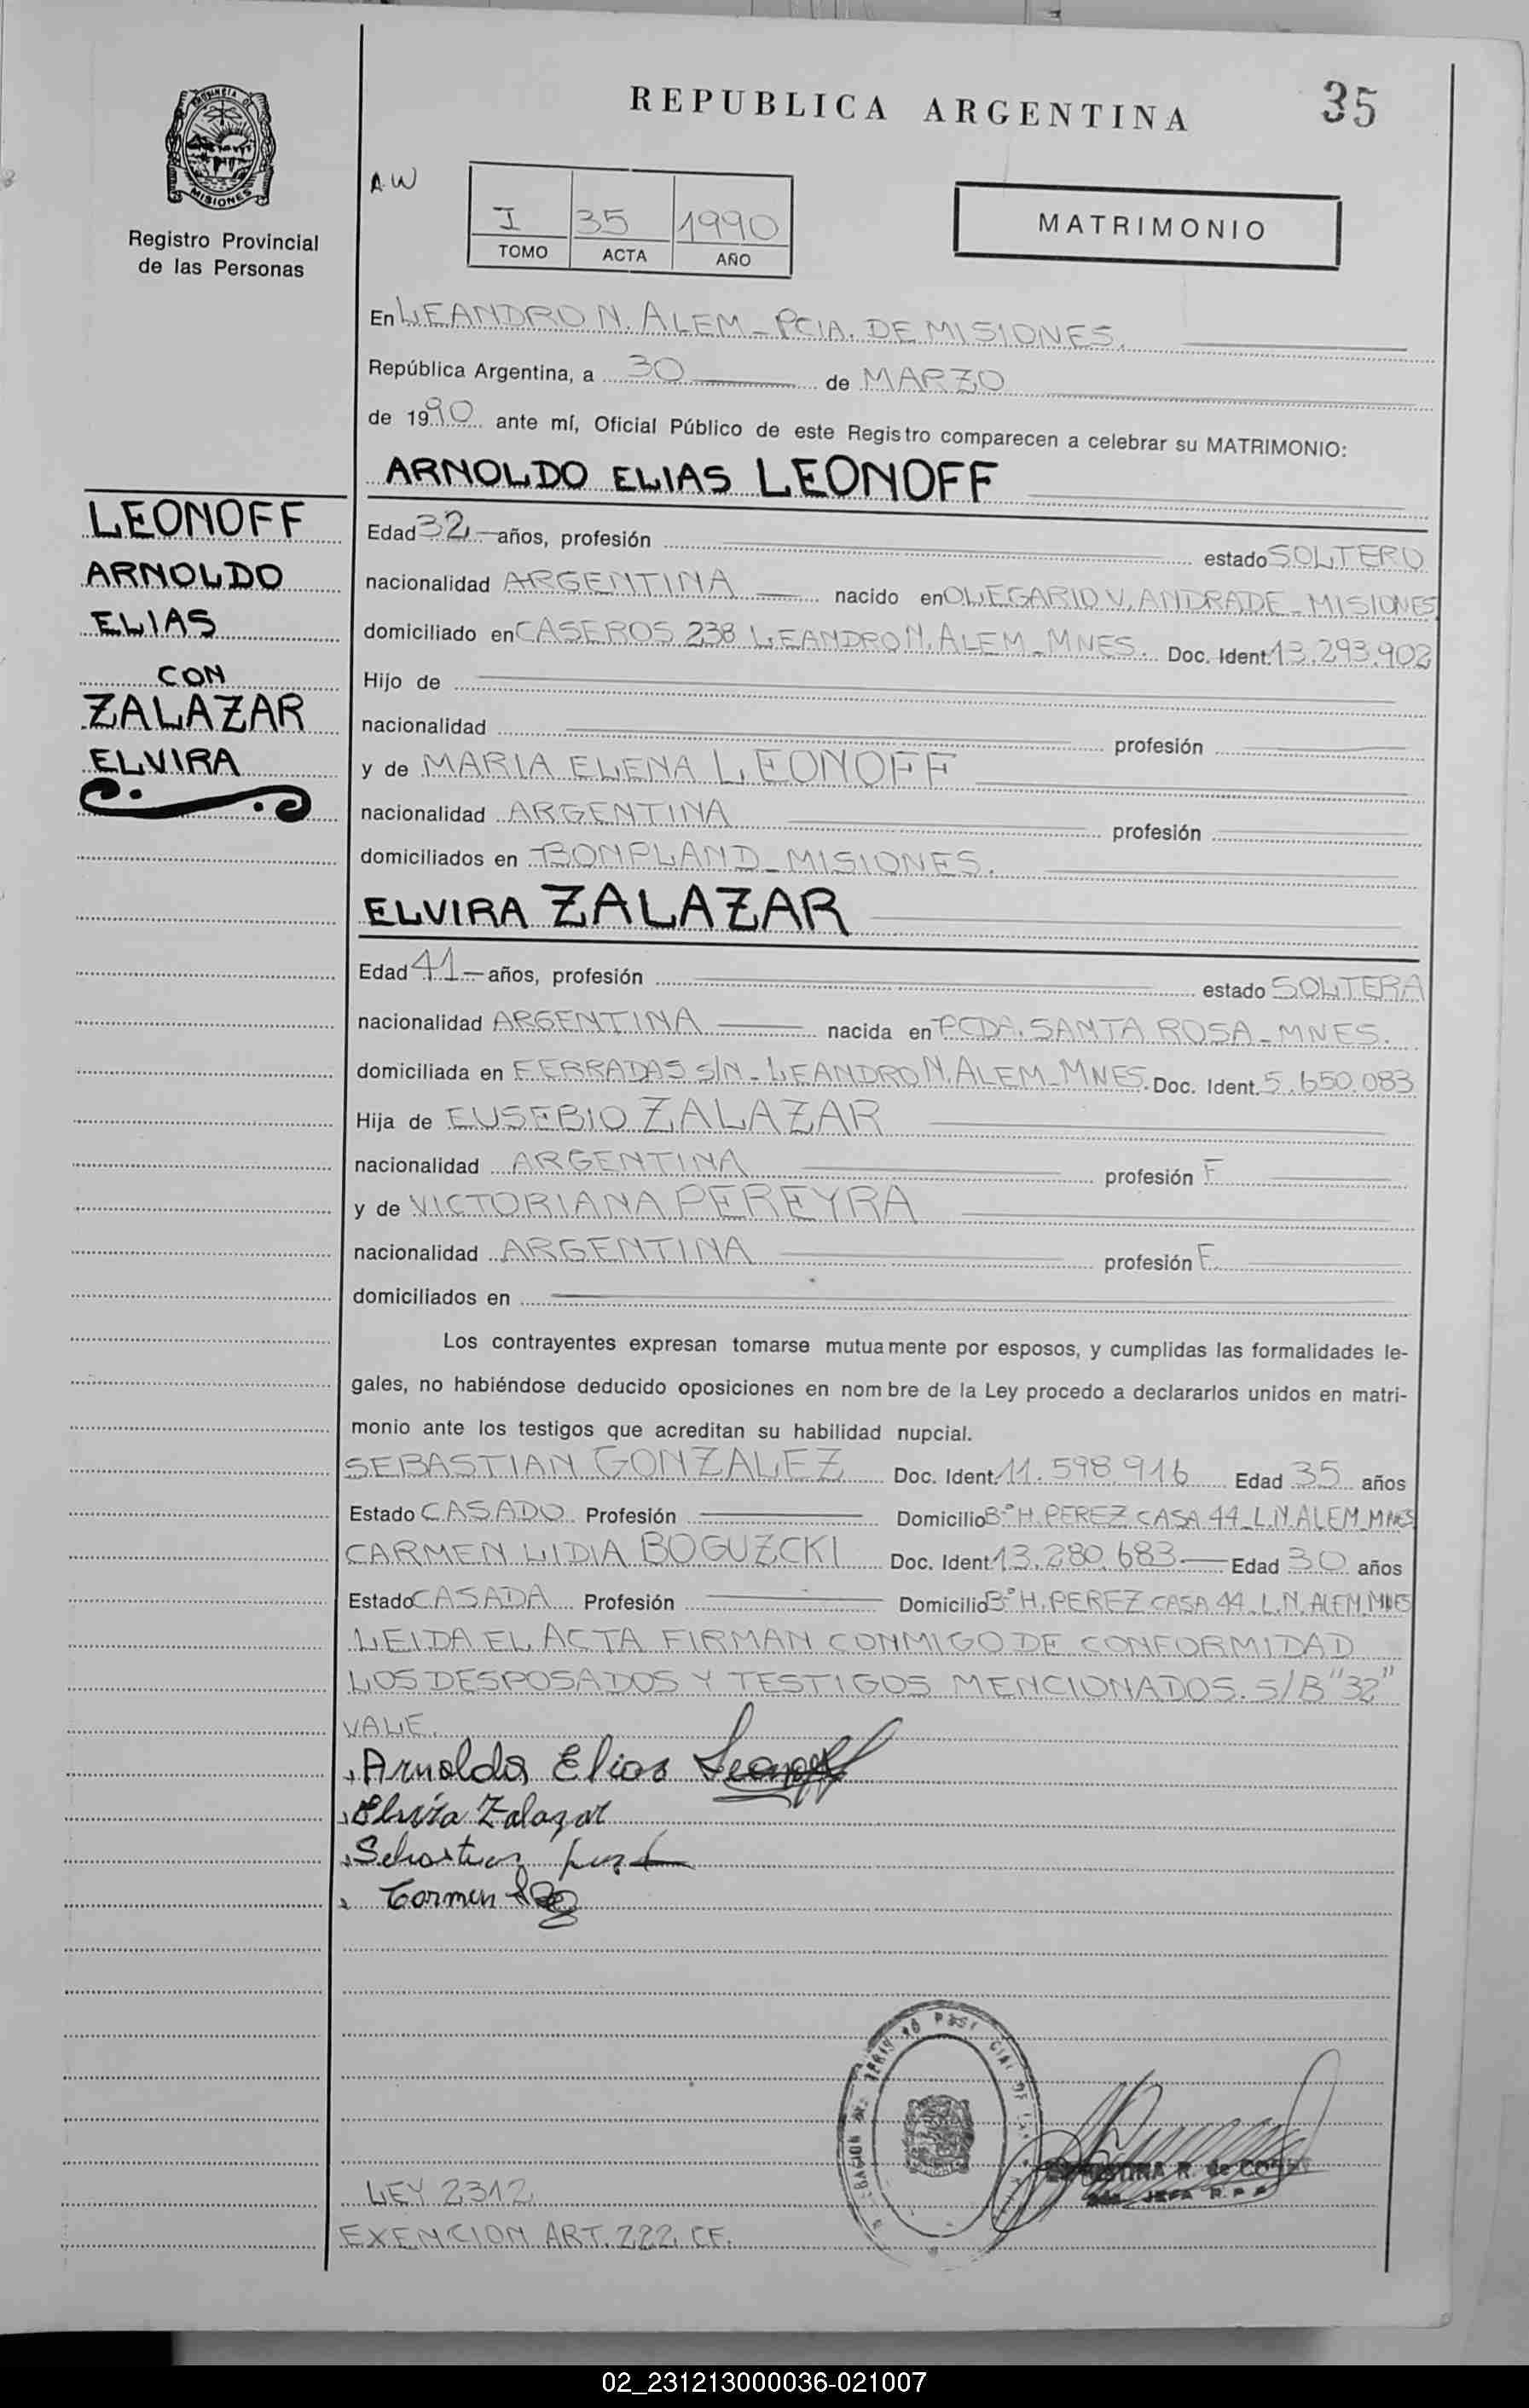 REPUBLICA ARGENTINA
35
PROVINCIA DE
MISIONES
Registro Provincial
de las Personas
AW
I 35 1990
TOMO ACTA AÑO
MATRIMONIO
En LEANDRO N. ALEM - PCIA. DE MISIONES.
República Argentina, a 30 de MARZO
de 1990 ante mí, Oficial Público de este Registro comparecen a celebrar su MATRIMONIO:
ARNOLDO ELIAS LEONOFF
LEONOFF
ARNOLDO
ELIAS
CON
ZALAZAR
ELVIRA
Edad 32 años, profesión estado SOLTERO
nacionalidad ARGENTINA nacido en OLEGARIO V. ANDRADE - MISIONES
domiciliado en CASEROS 238 LEANDRO N. ALEM - MNES. Doc. Ident. 13.293.902
Hijo de
nacionalidad profesión
y de MARIA ELENA LEONOFF
nacionalidad ARGENTINA profesión
domiciliados en BONPLAND - MISIONES.
ELVIRA ZALAZAR
Edad 41 años, profesión estado SOLTERA
nacionalidad ARGENTINA nacida en PCDA. SANTA ROSA - MNES.
domiciliada en FERRADAS S/N - LEANDRO N. ALEM - MNES. Doc. Ident. 5.650.083
Hija de EUSEBIO ZALAZAR
nacionalidad ARGENTINA profesión F
y de VICTORIANA PEREYRA
nacionalidad ARGENTINA profesión F
domiciliados en
Los contrayentes expresan tomarse mutuamente por esposos, y cumplidas las formalidades le-
gales, no habiéndose deducido oposiciones en nombre de la Ley procedo a declararlos unidos en matri-
monio ante los testigos que acreditan su habilidad nupcial.
SEBASTIAN GONZALEZ Doc. Ident. 11.598.916 Edad 35 años
Estado CASADO Profesión Domicilio B° H. PEREZ CASA 44 - L.N. ALEM - MNES
CARMEN LIDIA BOGUZCKI Doc. Ident. 13.280.683 Edad 30 años
Estado CASADA Profesión Domicilio B° H. PEREZ CASA 44 - L.N. ALEM - MNES
LEIDA EL ACTA FIRMAN CONMIGO DE CONFORMIDAD
LOS DESPOSADOS Y TESTIGOS MENCIONADOS. S/B "32"
VALE.
Arnoldo Elias Leonoff
Elvira Zalazar
Sebastian
Carmen
R. de
JEFA R.P.P.
LEY 2312
EXENCION ART. 222 CF.
02_231213000036-021007